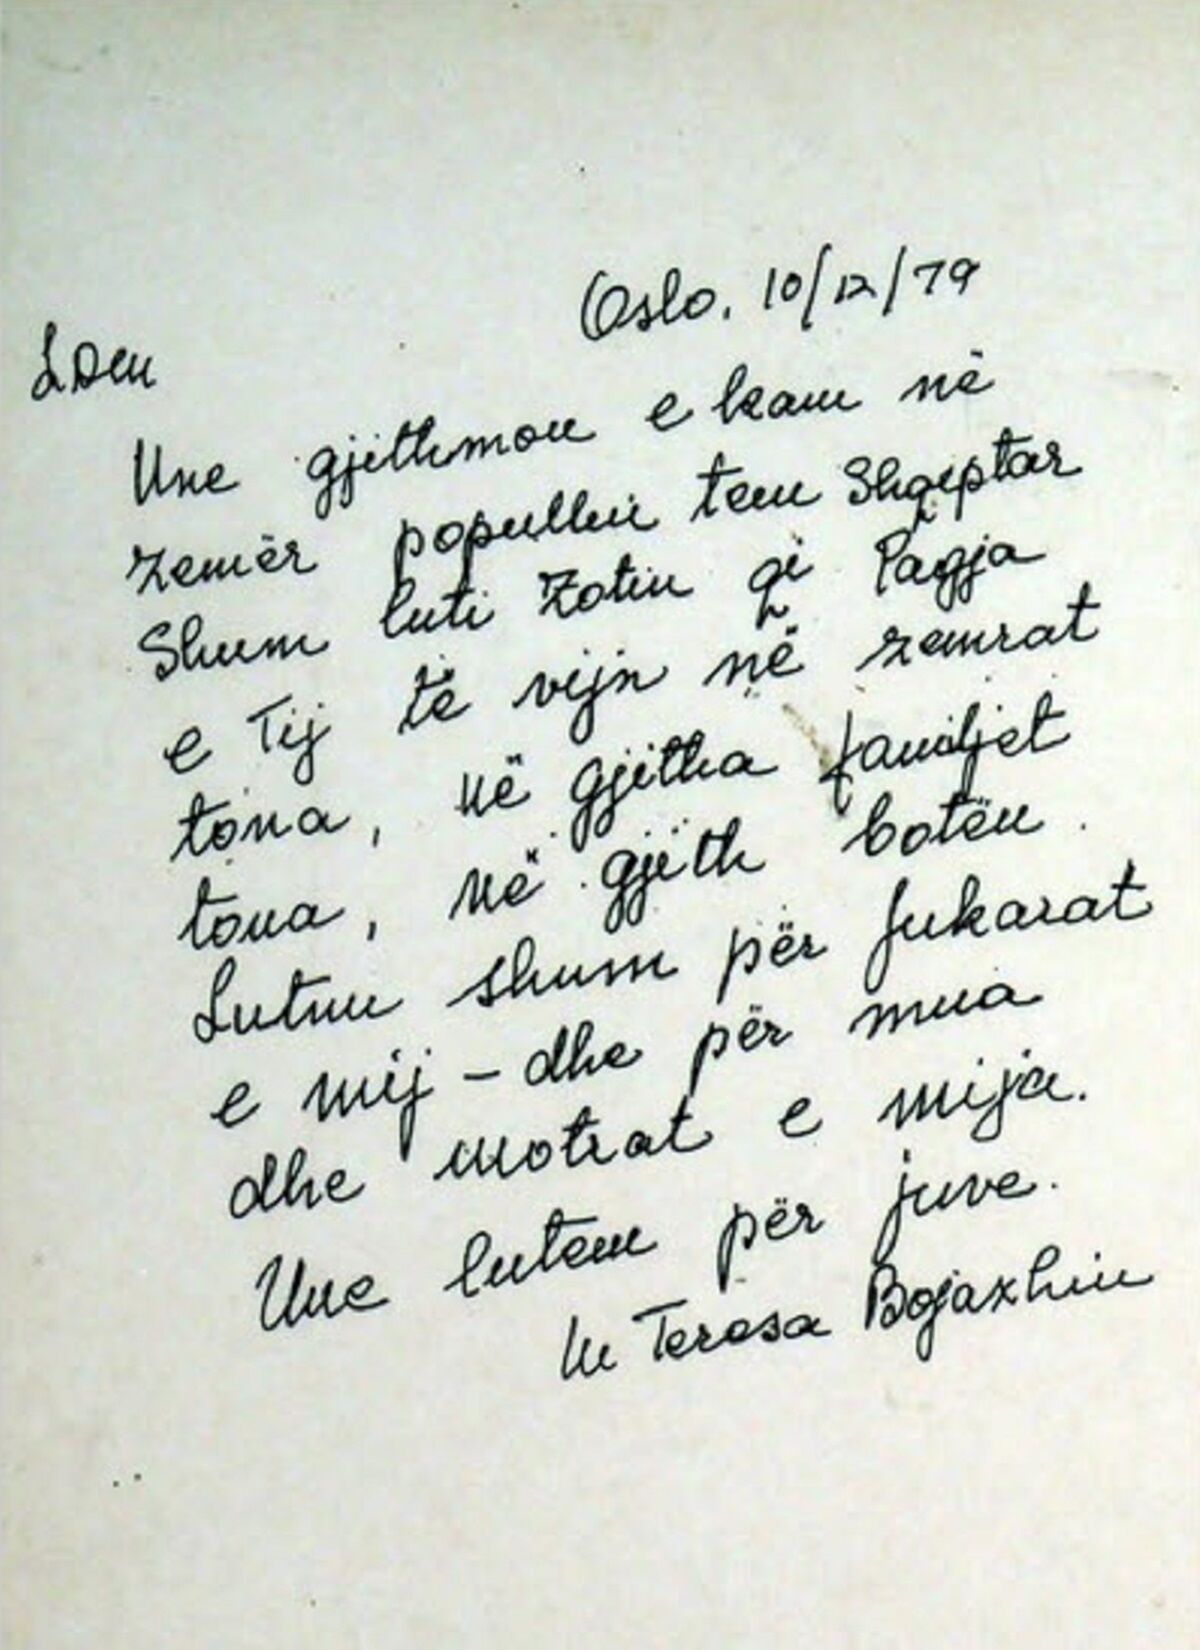 Oslo. 10/12/79
LDM
Une gjithmon e kam në
zemër popullin tem Shqiptar
Shum luti Zotin qi Paqja
e Tij të vijn në zemrat
tona, në gjitha familjet
tona, në gjith botën.
Lutnu shum për fukarat
e mij – dhe për mua
dhe motrat e mija.
Une lutem për juve.
M Teresa Bojaxhiu